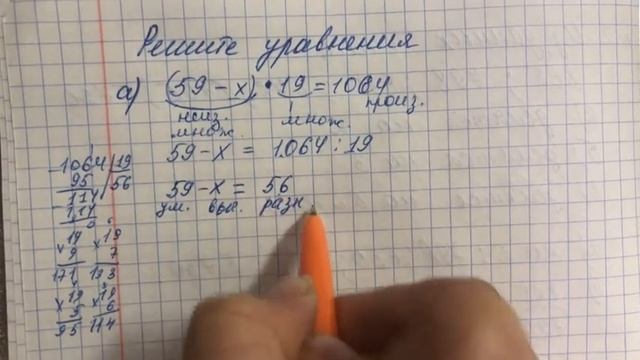 Решите уравнения
а) (59 – х) • 19 = 1064
неиз. множ. произ.
множ.
59 – х = 1064 : 19
59 – х = 56
ум. выч. разн
1064 | 19
95 | 56
114
114
0
× 19 × 19
9 7
171 133
× 19 × 19
5 6
95 114